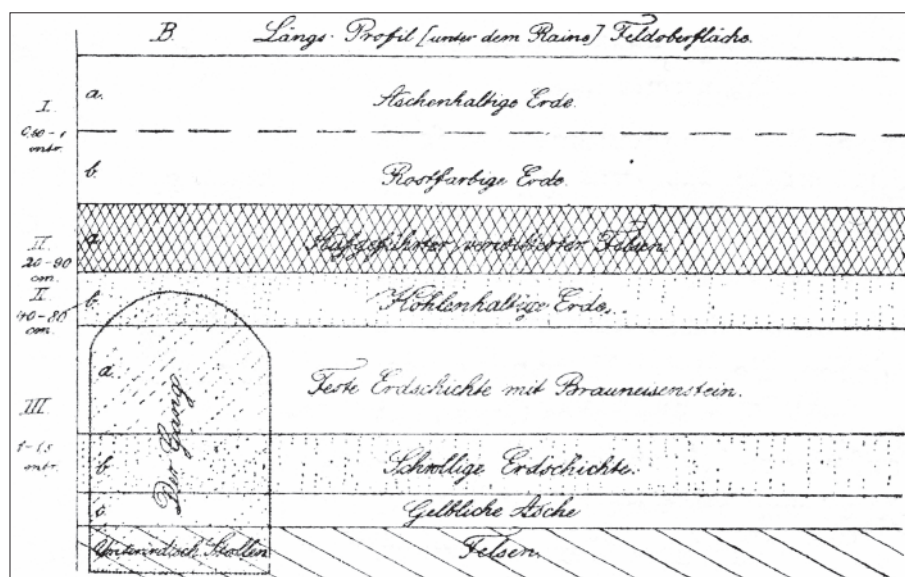 B Längs-Profil [unter dem Raine] Feldoberfläche.
I a. Aschenhaltige Erde.
0,80-1
mtr.
b. Rostfarbige Erde.
II a. Aufgeführter, verwitterter Felsen.
20-90
cm.
II b. Kohlenhaltige Erde.
40-80
cm.
a. Feste Erdschichte mit Brauneisenstein.
III
1-1.5
mtr.
b Schrollige Erdschichte.
c Gelbliche Asche
Der Gang
Unterirdisch. Stollen Felsen.